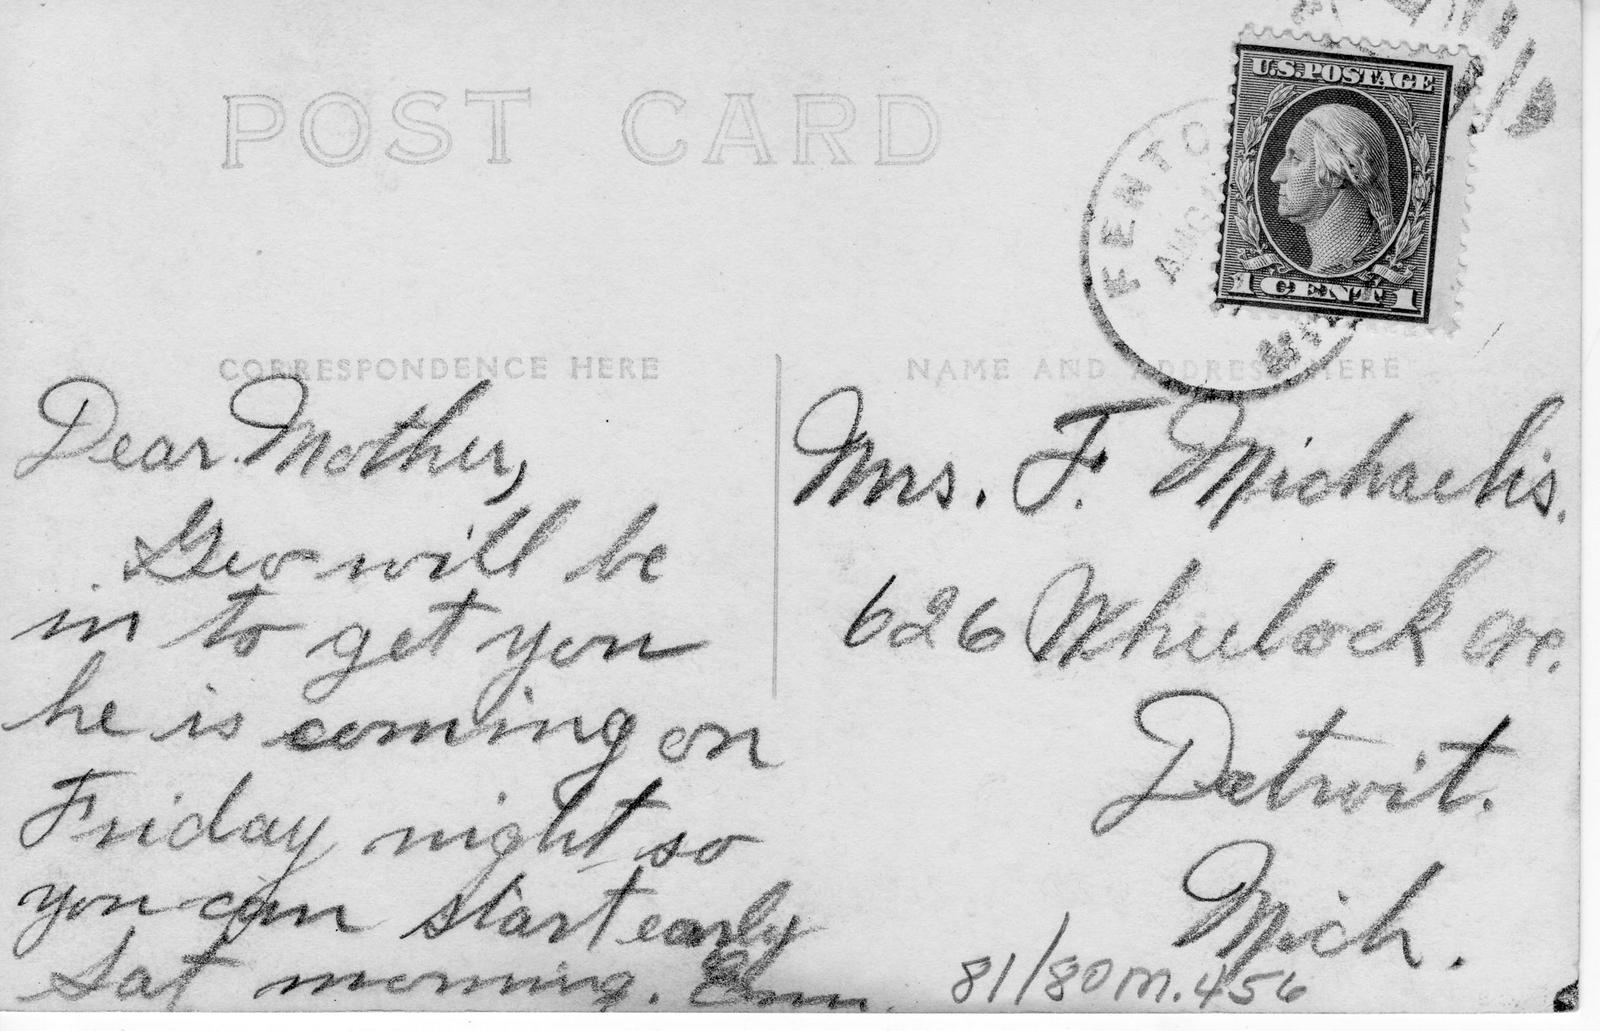 POST CARD
U.S. POSTAGE
1 CENT 1
FENTO
AUG
MICH
CORRESPONDENCE HERE
Dear Mother,
Geo will be
in to get you
he is coming on
Friday night so
you can start early
Sat morning.
NAME AND ADDRESS HERE
Mrs. F. Michaelis.
626 Wheelock ave.
Detroit.
Mich.
81/80m.456